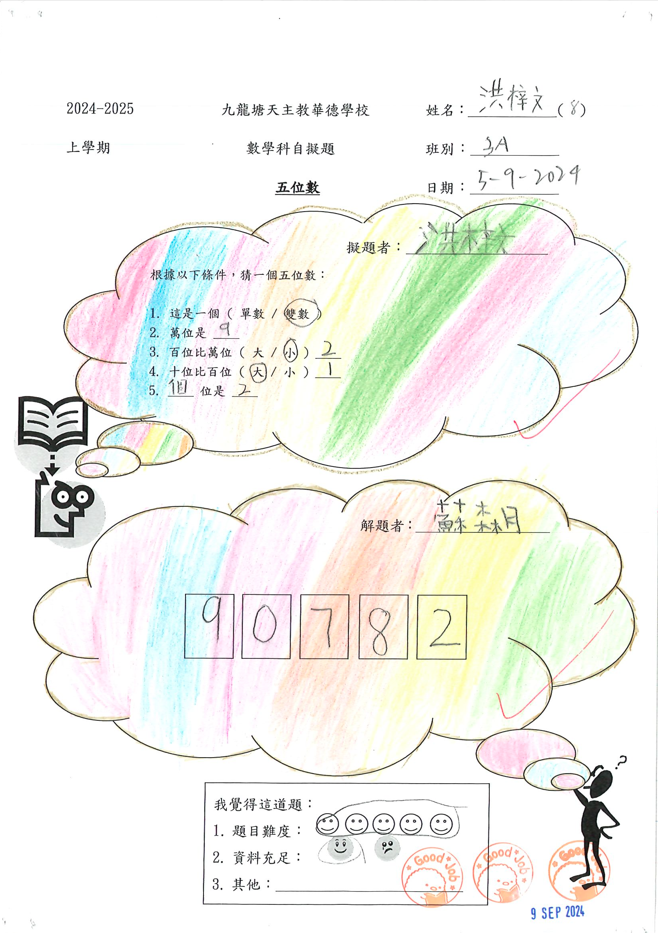 2024-2025 九龍塘天主教華德學校 姓名：洪梓文(8)
上學期 數學科自擬題 班別：3A
五位數 日期：5-9-2024
擬題者：洪梓文
根據以下條件，猜一個五位數：
1. 這是一個（ 單數 / 雙數 ）
2. 萬位是 9
3. 百位比萬位（ 大 / 小 ）2
4. 十位比百位（ 大 / 小 ）1
5. 個 位是 2
解題者：蘇
9 0 7 8 2
我覺得這道題：
1. 題目難度：
2. 資料充足：
3. 其他：
Good Job
Good Job
Good Job
9 SEP 2024